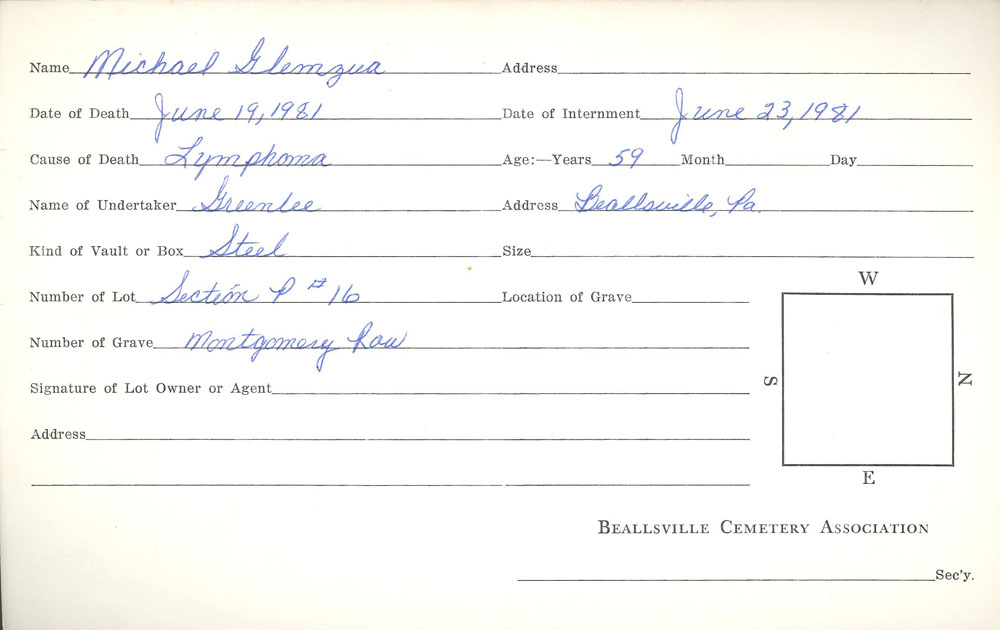 Name Michael Glemzua Address
Date of Death June 19, 1981 Date of Internment June 23, 1981
Cause of Death Lymphoma Age:—Years 59 Month Day
Name of Undertaker Greenlee Address Beallsville, Pa.
Kind of Vault or Box Steel Size
Number of Lot Section P # 16 Location of Grave
W
Number of Grave Montgomery Row
S N
Signature of Lot Owner or Agent
Address
E
BEALLSVILLE CEMETERY ASSOCIATION
Sec'y.